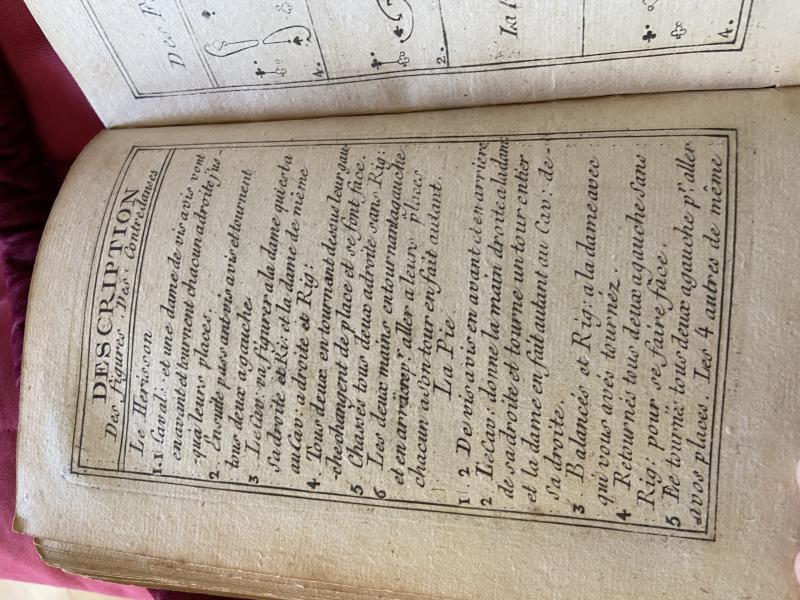 DESCRIPTION
Des figures Des Contredanses
Le Herisson
1. 1 Caval: et une dame de vis avis vont
en avant et tournent chacun adroite jus-
qu'a leurs places.
2 Ensuite passent vis avis et tournent
tous deux agauche.
3 Le Cav: va figurer ala dame qui esta
Sa droite et Rig: et la dame de même
au Cav: a droite et Rig:
4 Tous deux en tournant dessus leur gau
-che changent de place et se font face.
5 Chassés tous deux adroite sans Rig:
6 Les deux mains en tournant agauche
et en arriere pr. aller a leurs places
chacun a son tour en fait autant.
La Pie
1. 2 De vis avis en avant et en arriere
2 Le Cav: donne la main droite a la dame
de sa droite et tourne un tour entier
et la dame en fait autant au Cav: de-
Sa droite.
3 Balancés et Rig: a la dame avec
qui vous avés tournéz.
4 Retournés tous deux agauche Sans
Rig: pour se faire face.
5 Et tournés tous deux agauche pr. aller
avos places. Les 4 autres de même
Des F
4.
2.
La
4.